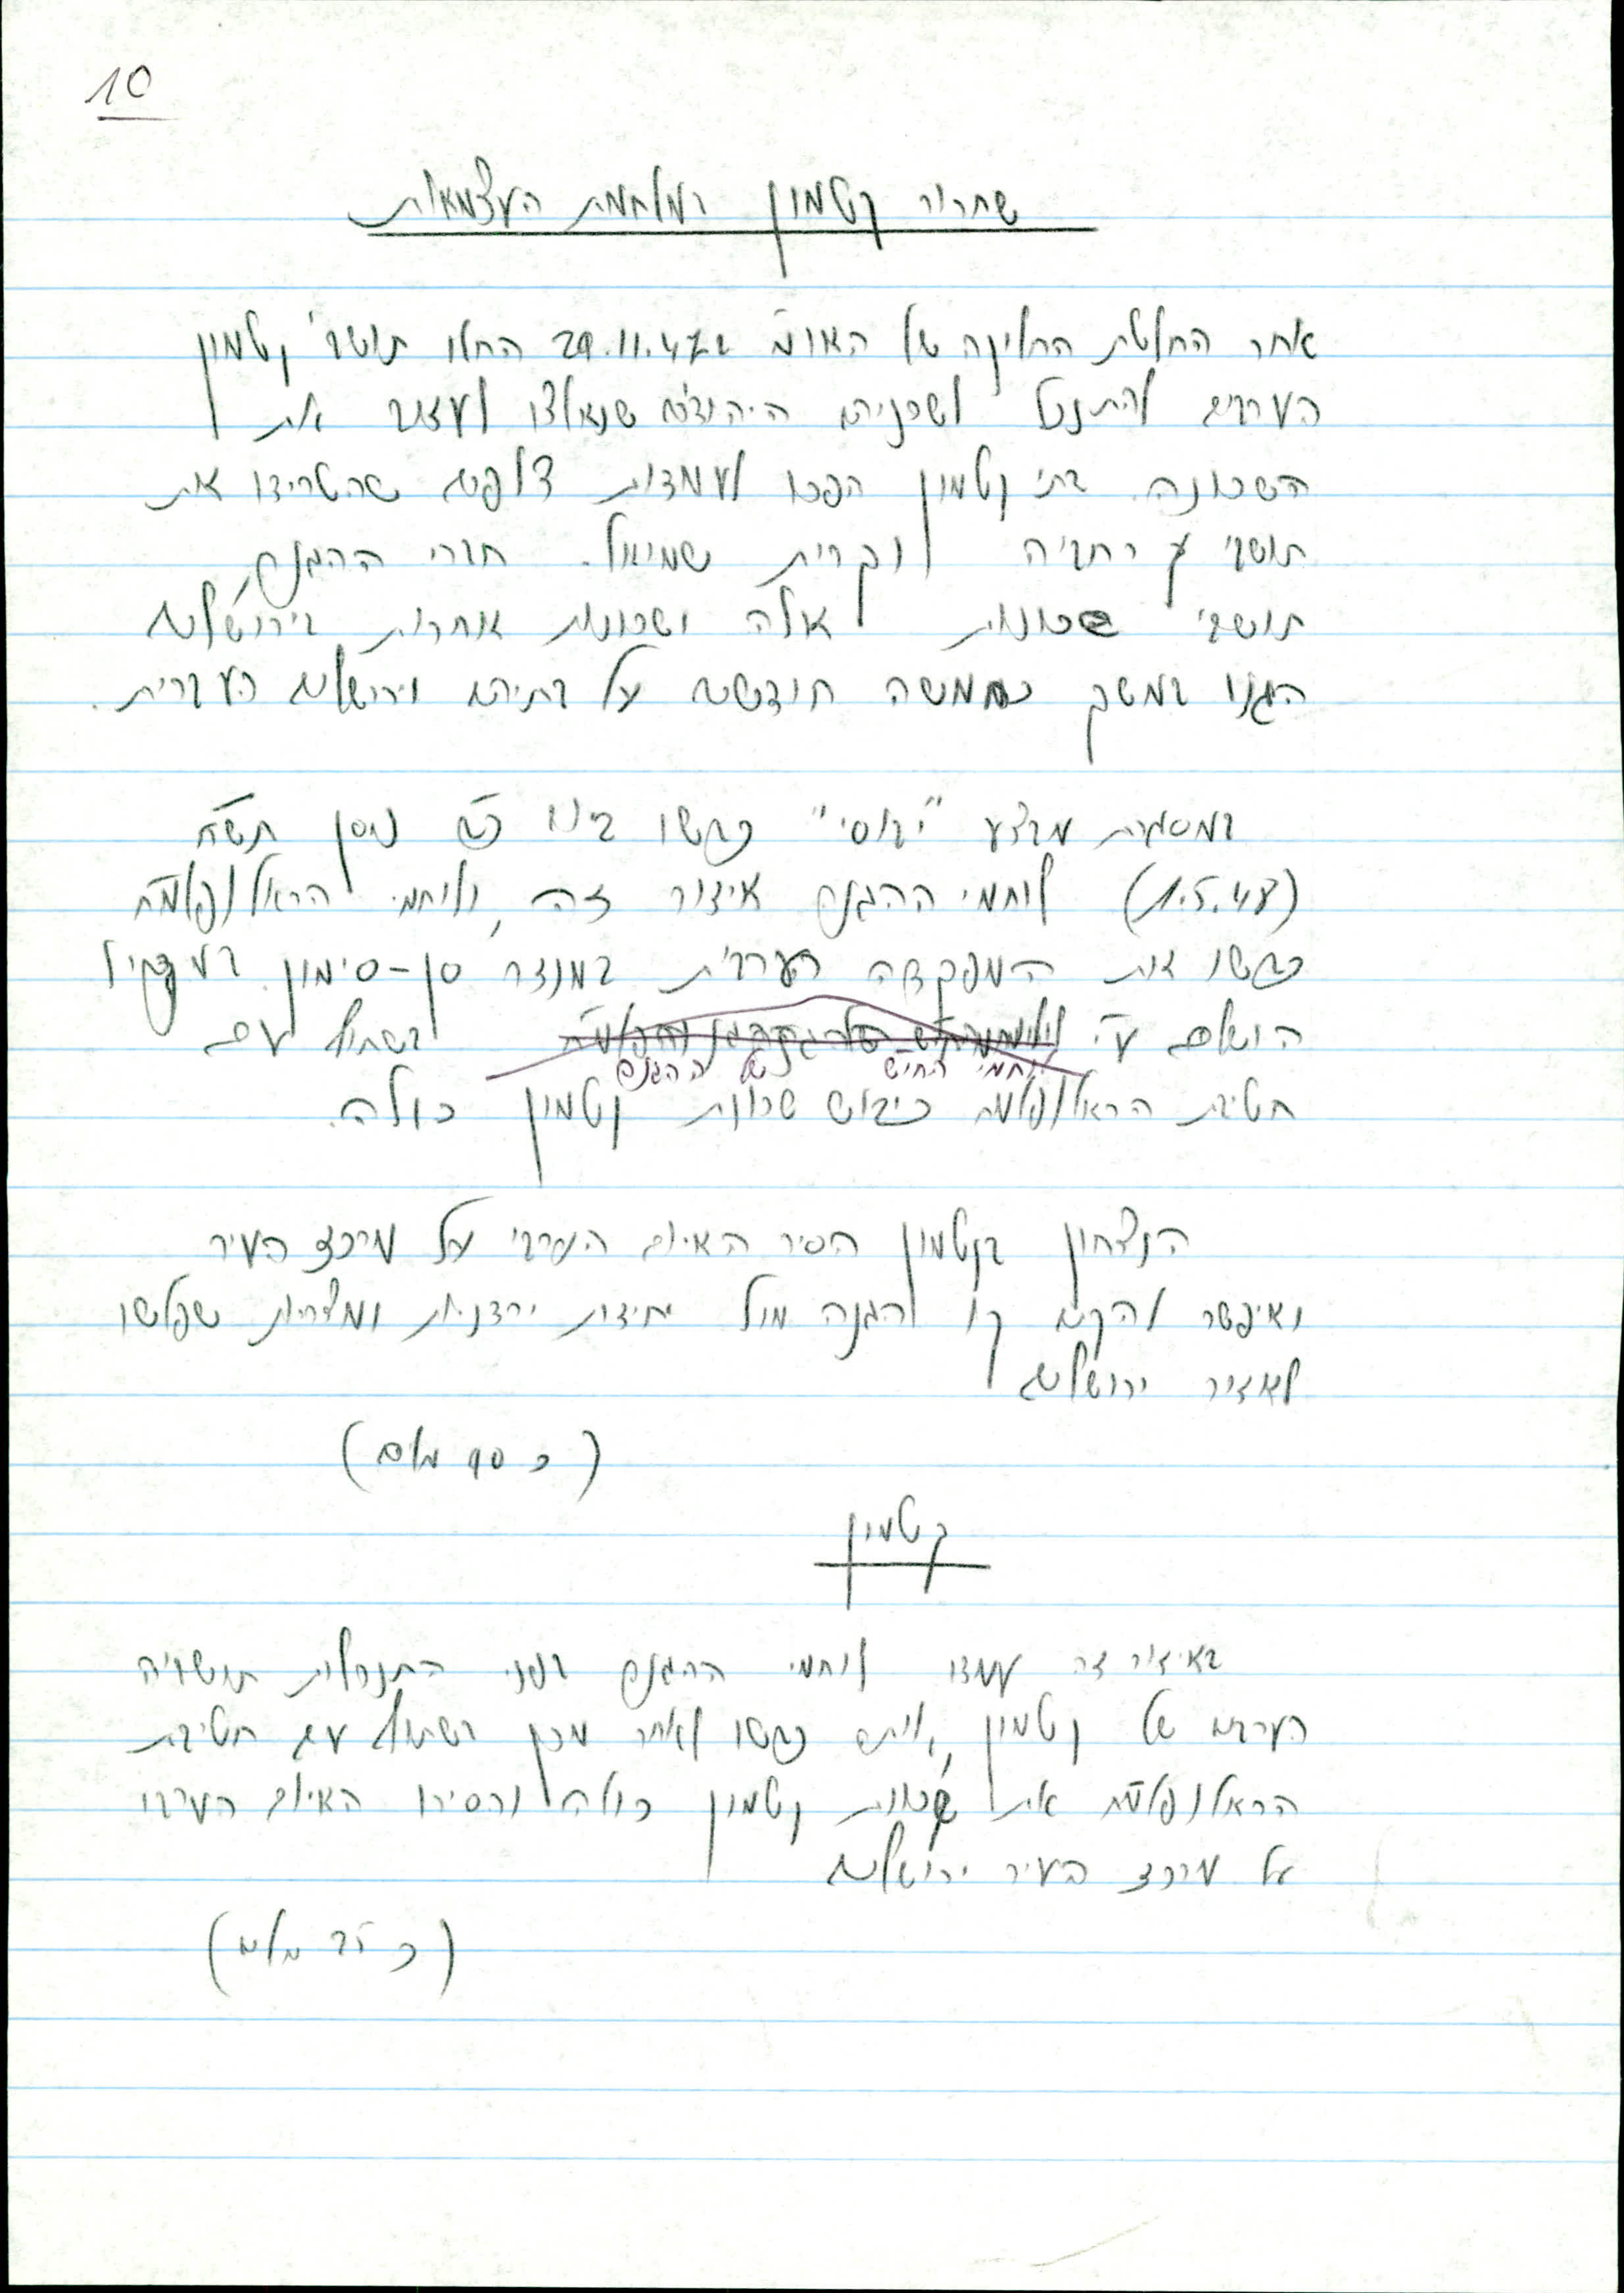 10
שחרור קטמון במלחמת העצמאות
אחר החלטת החלוקה של האו"מ ב 29.11.47 החלו תושבי קטמון
הערבים להתנכל לשכניהם היהודים שנאלצו לעזוב את
השכונה. בתי קטמון הפכו לעמדות צלפים שהטרידו את
תושבי רחביה וקרית שמואל. חברי ההגנה,
תושבי שכונות אלה ושכונות אחרות בירושלים
הגנו במשך כחמשה חודשים על בתיהם וירושלים העברית.
במסגרת מבצע "יבוסי" כבשו ביום כב ניסן תש"ח
(1.5.48) לוחמי ההגנה איזור זה, ולוחמי הראל/פלמ"ח
כבשו את המפקדה הערבית במנזר סן-סימון. במקביל
הושלם ע"י בשתוף עם
לוחמי החי"ש של ההגנה
חטיבת הראל/פלמ"ח כיבוש שכונת קטמון כולה.
הנצחון בקטמון הסיר האיום הערבי על מרכז העיר
ואיפשר להקים קו הגנה מול יחידות ירדניות ומצריות שפלשו
לאזור ירושלים
(כ 90 מלים)
קטמון
באיזור זה עמדו לוחמי ההגנה בפני התנכלות תושביה
הערבים של קטמון, אותה כבשו לאחר מכן בשתוף עם חטיבת
הראל/פלמ"ח את שכונת קטמון כולה והסירו האיום הערבי
על מרכז העיר ירושלים
(כ 25 מלים)